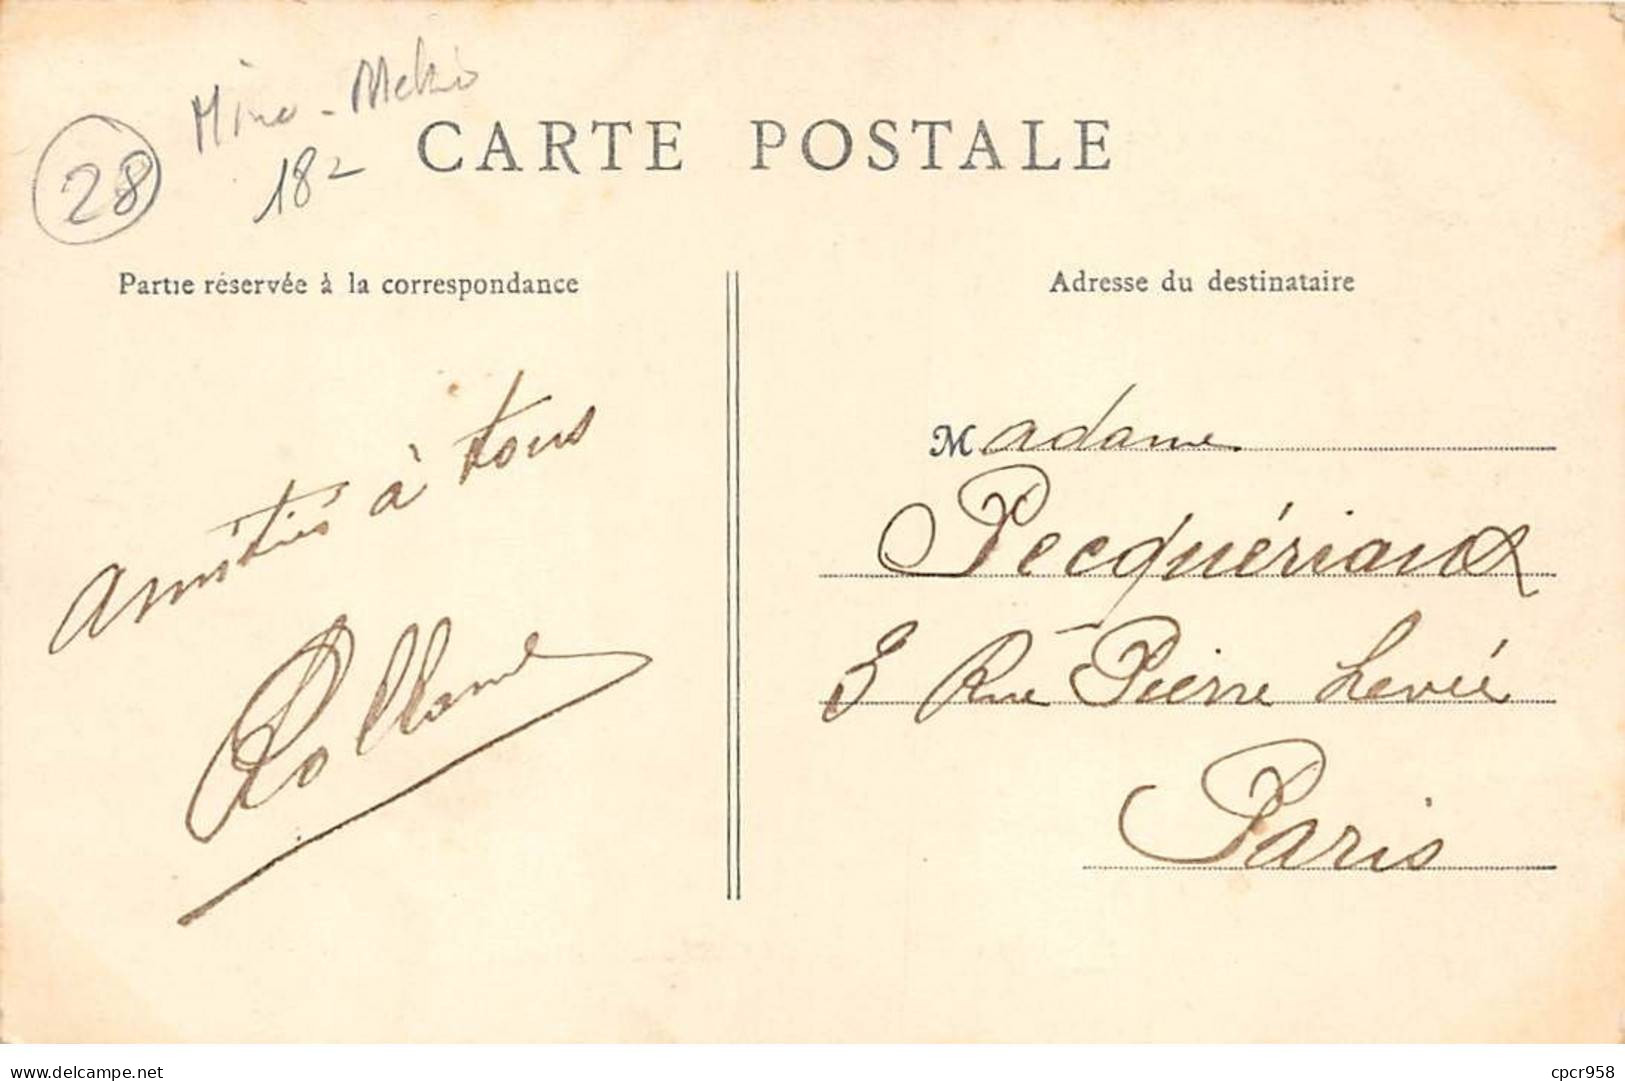 28
182
CARTE POSTALE
Partie réservée à la correspondance
Adresse du destinataire
amitiés à tous
Madame
Pecquériaux
3 Rue Pierre Levée
Paris
www.delcampe.net
cpcr958